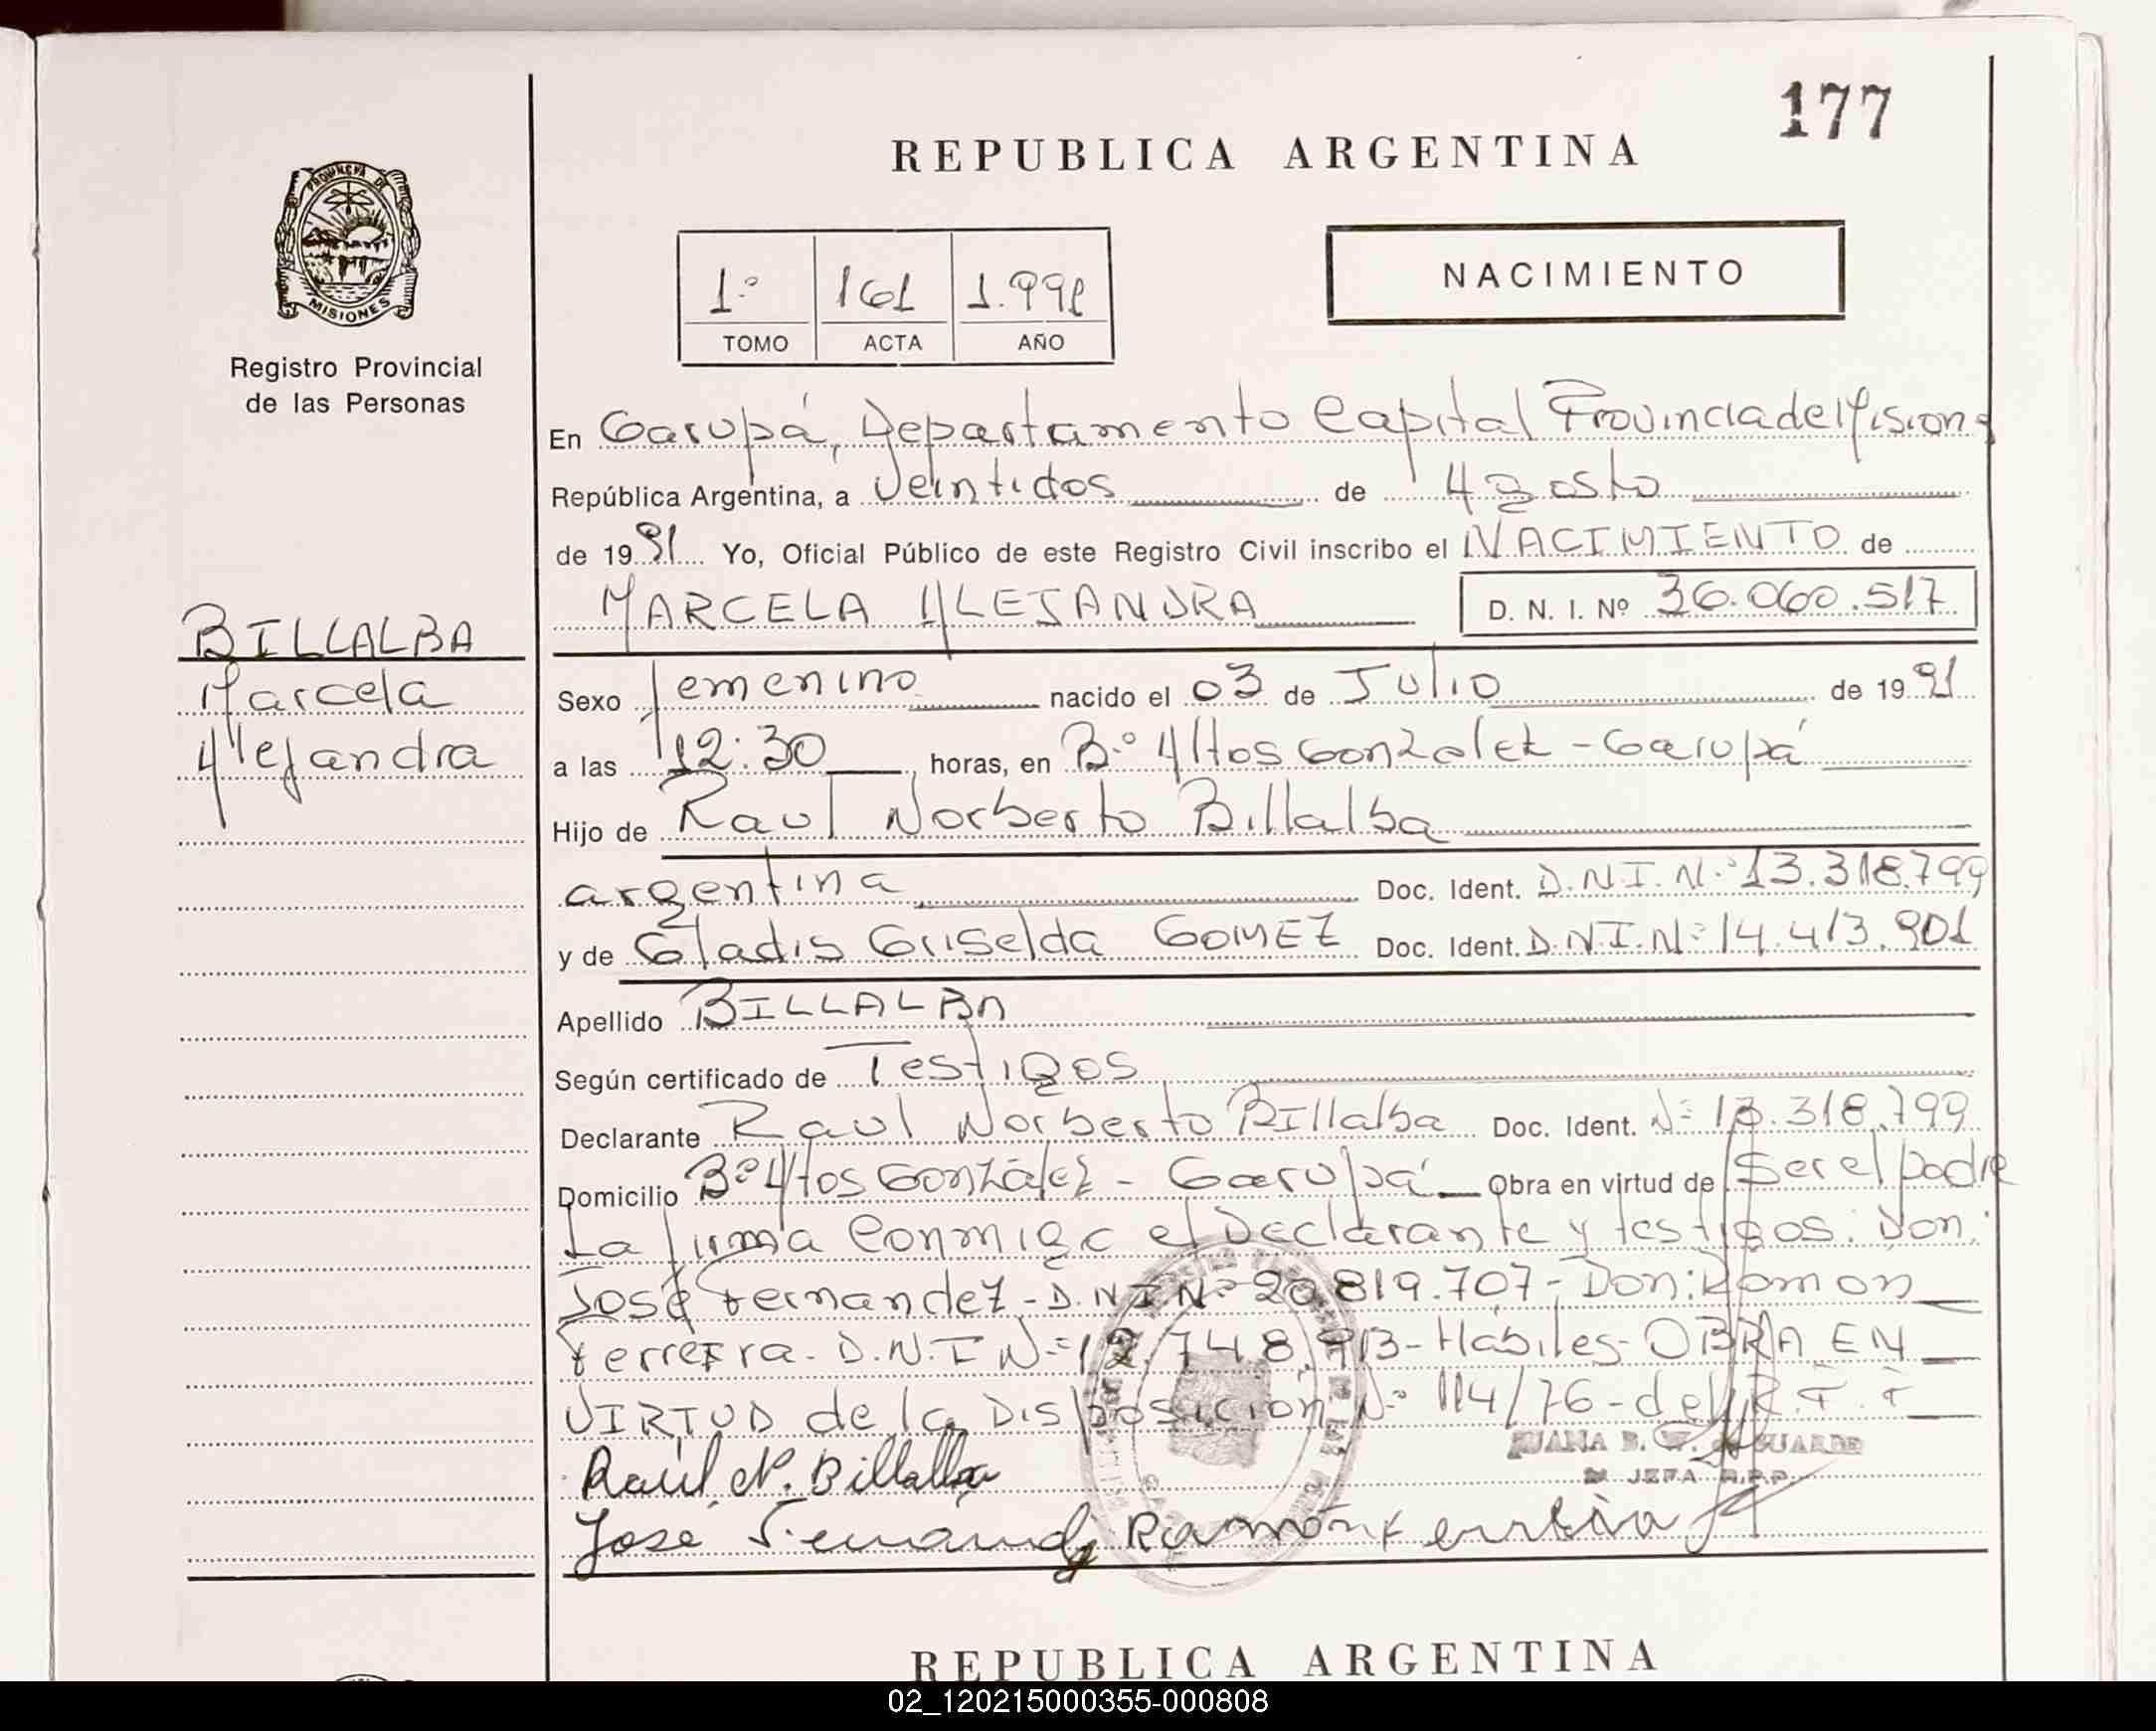 177
REPUBLICA ARGENTINA
PROVINCIA DE
MISIONES
Registro Provincial
de las Personas
1º 161 1.991
TOMO ACTA AÑO
NACIMIENTO
En Garupá, Departamento Capital Provincia de Misiones
República Argentina, a Veintidos de Agosto
de 1991 Yo, Oficial Público de este Registro Civil inscribo el NACIMIENTO de
MARCELA ALEJANDRA D. N. I. Nº 36.060.517
BILLALBA
Marcela
Alejandra
Sexo femenino nacido el 03 de Julio de 1991
a las 12:30 horas, en Bº Altos Gonzalez - Garupá
Hijo de Raul Norberto Billalba
argentina Doc. Ident. D.N.I.Nº 13.318.799
y de Gladis Griselda GOMEZ Doc. Ident. D.N.I.Nº 14.413.901
Apellido BILLALBA
Según certificado de Testigos
Declarante Raul Norberto Billalba Doc. Ident. Nº 13.318.799
Domicilio Bº Altos González - Garupá Obra en virtud de Ser el padre
La firma Conmigo el Declarante y testigos: Don:
José Fernandez - D.N.I.Nº 20.819.707 - Don: Ramon
Ferreira - D.N.I Nº 12.748.913 - Hábiles - OBRA EN
VIRTUD de la Disposicion Nº 114/76 - del
JUANA B. de
JEFA R.P.P.
Raúl N. Billalba
José Fernandez Ramón Ferreira
REPUBLICA ARGENTINA
02_120215000355-000808